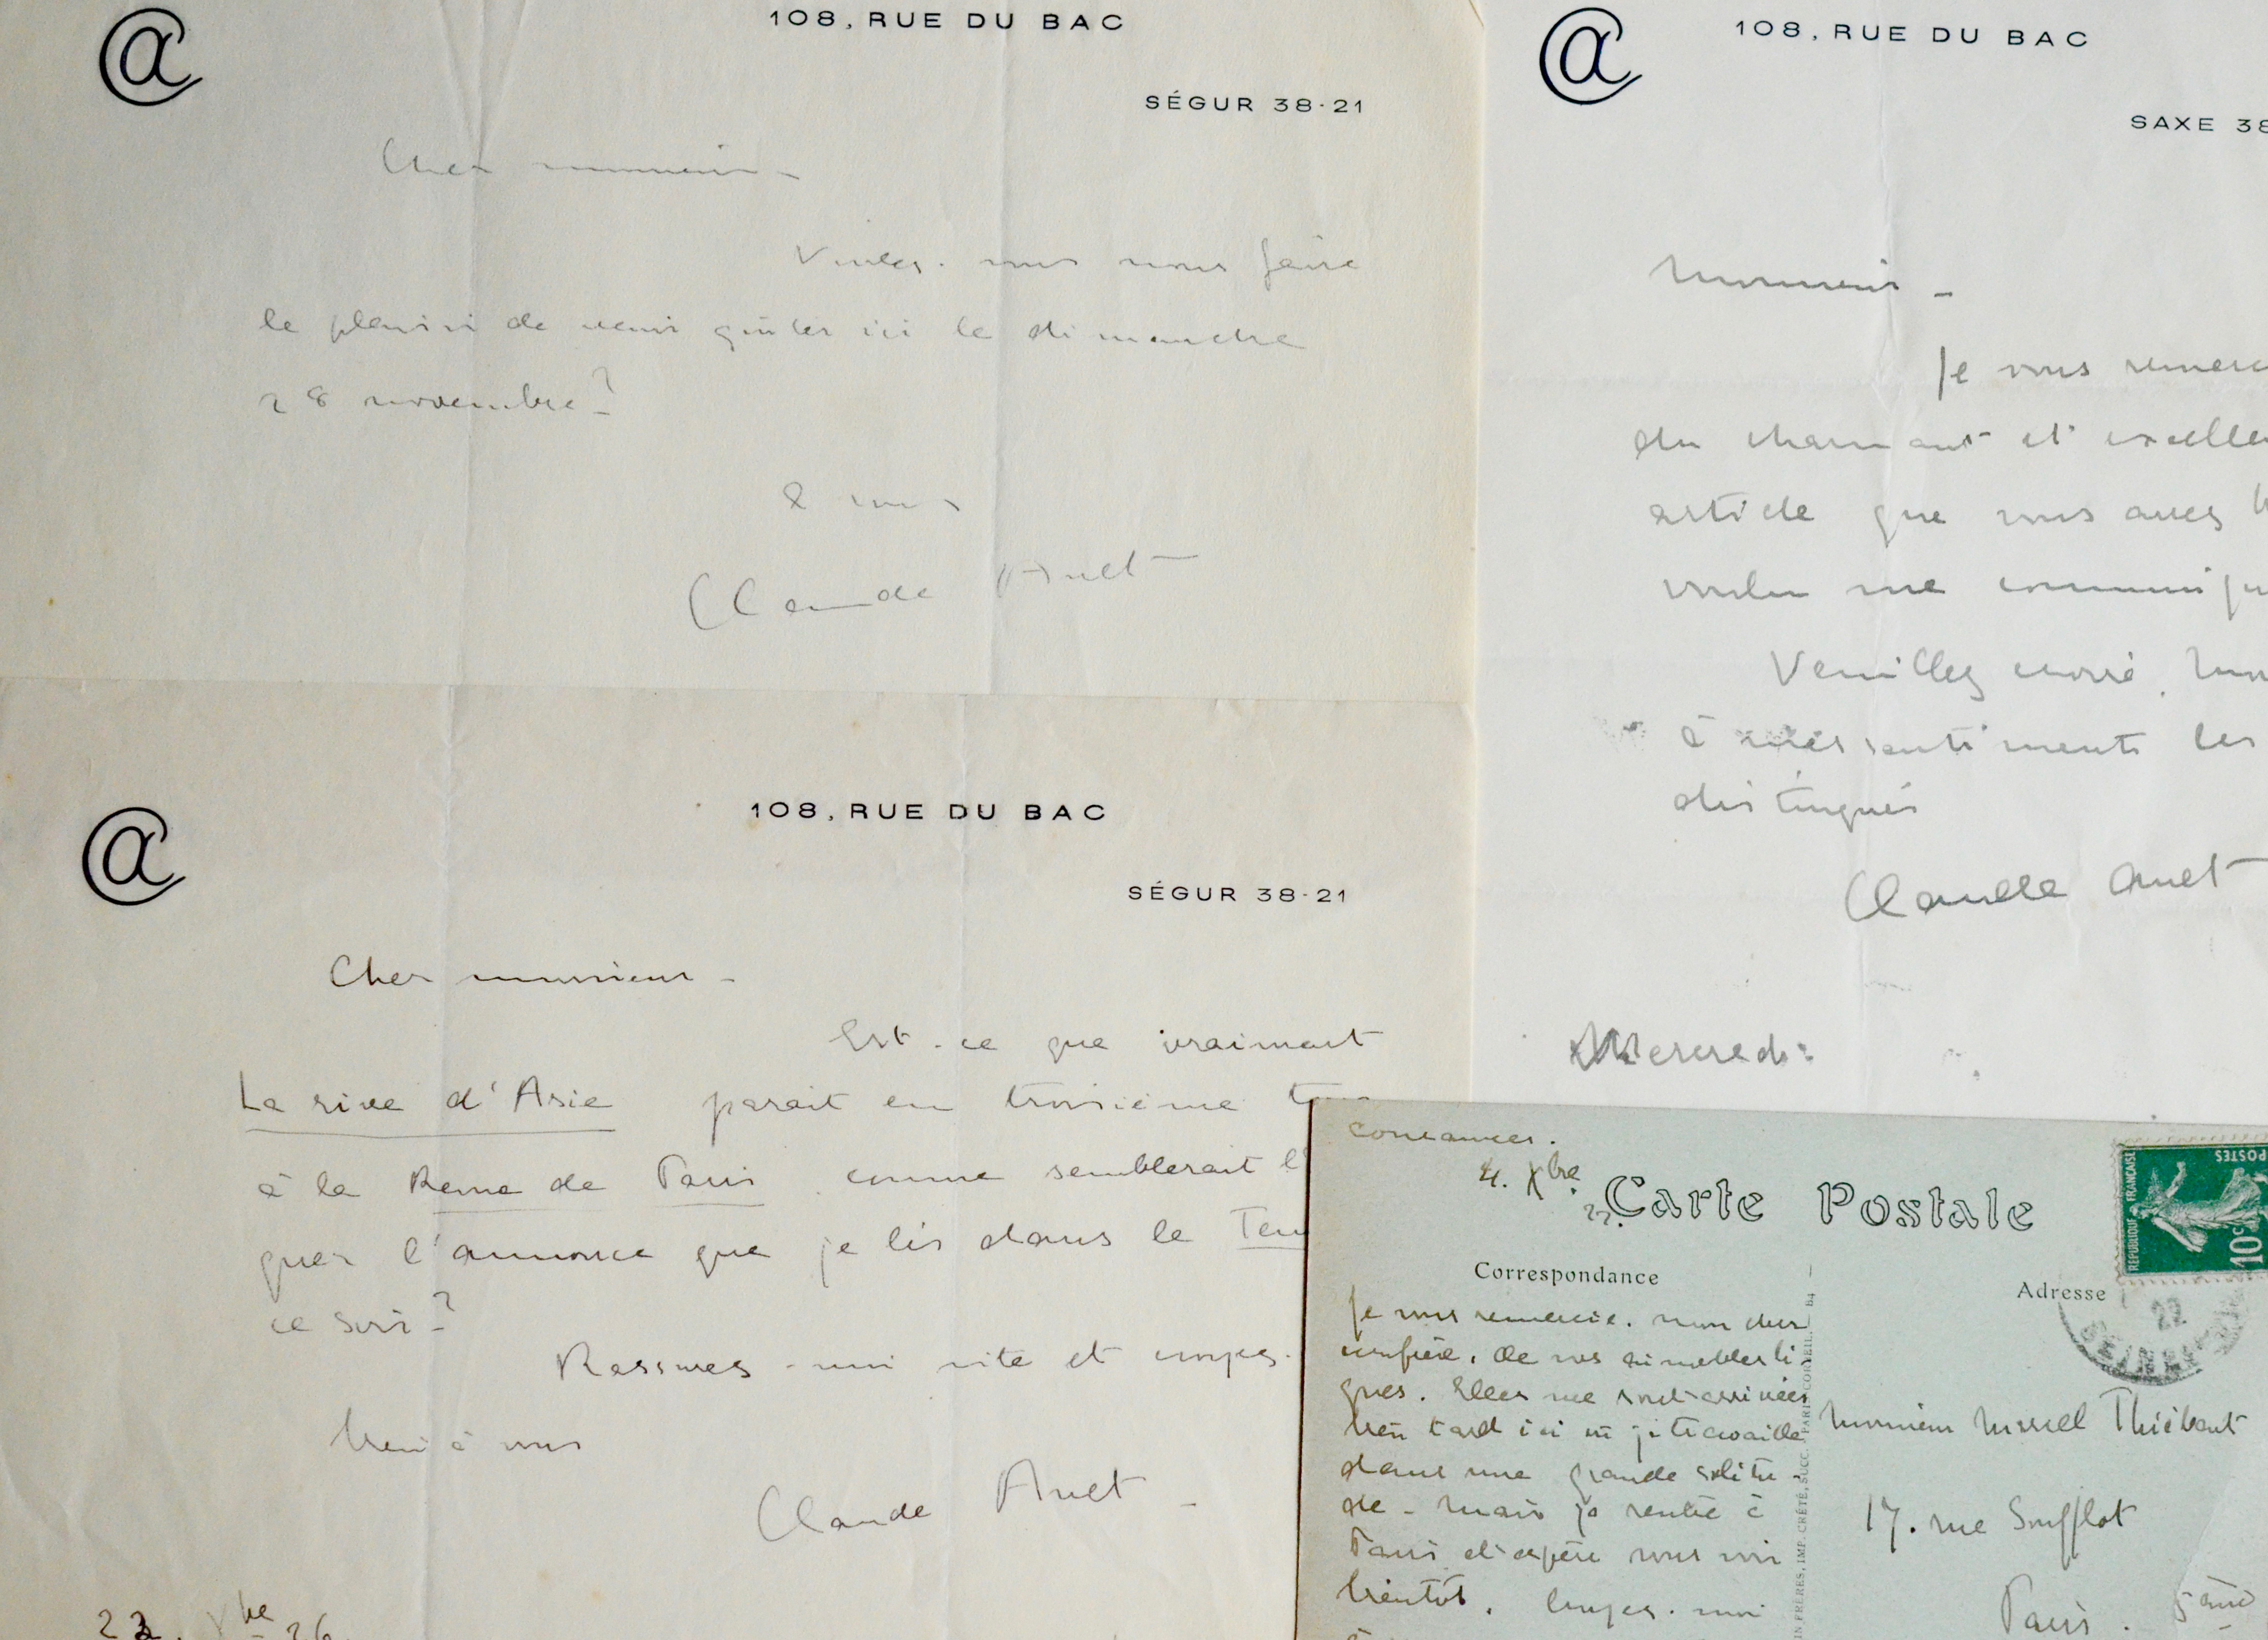 @
108, RUE DU BAC
SÉGUR 38-21
Cher monsieur -
Voulez-vous nous faire
le plaisir de venir goûter ici le dimanche
28 novembre?
à vous
Claude Anet
@
108, RUE DU BAC
SÉGUR 38-21
Cher monsieur -
Est-ce que vraiment
La rive d'Asie parait en troisième
à la Revue de Paris comme semblerait
l'annonce que je lis dans le
ce soir?
Rassurez-moi vite et croyez-
bien à vous
Claude Anet -
23. Xbre 26.
@
108, RUE DU BAC
SAXE 38
Monsieur -
Je vous
du charmant et
article que vous avez
voulu me
Veuillez croire,
à mes sentiments les
distingués
Claude Anet
Mercredi
4. Xbre
22.
Carte Postale
Correspondance
Adresse
POSTES
REPUBLIQUE FRANÇAISE
10c
22
Je vous remercie, mon cher
confrère, de vos aimables li-
gnes. Elles me sont arrivées
bien tard ici où je travaille
dans une grande solitu-
de - Mais je rentre à
Paris et espère vous voir
bientôt. Croyez-moi
Monsieur Marcel Thiébaut
17. rue Soufflot
Paris. 5ème
FRÈRES, IMP. CRÉTÉ, SUCC. PARIS-CORBEIL